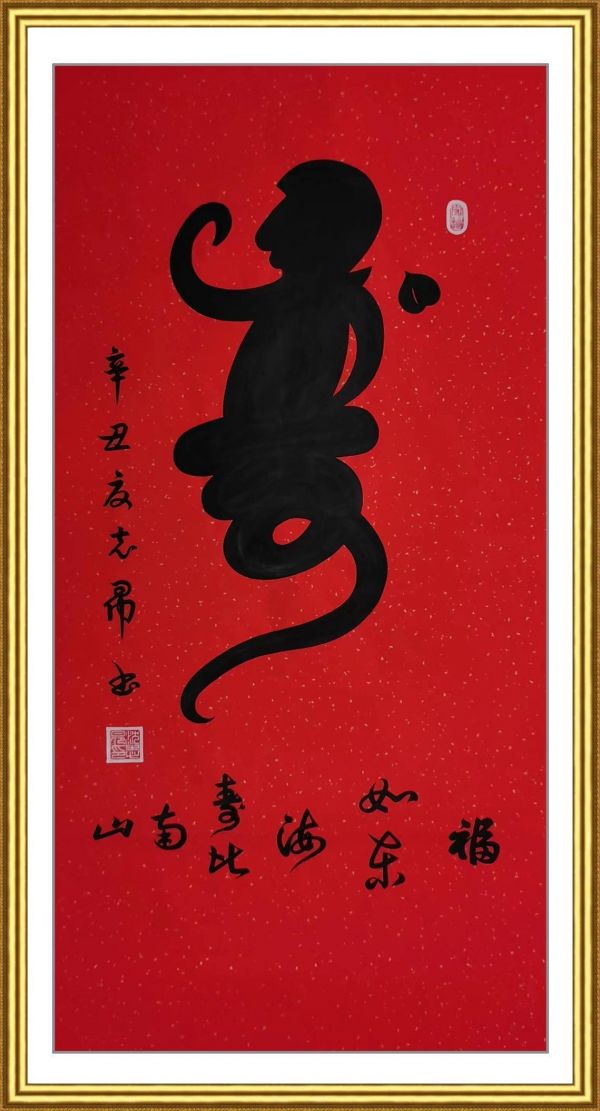 福如东海寿比南山
辛丑夏志昂书